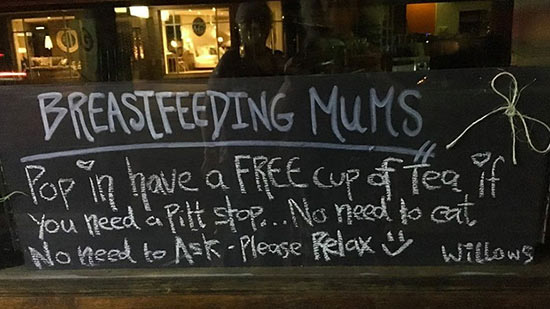 BREASTFEEDING MUMS
Pop in have a FREE cup of Tea if
you need a pitt stop... No need to eat
No need to Ask - please Relax
Willows